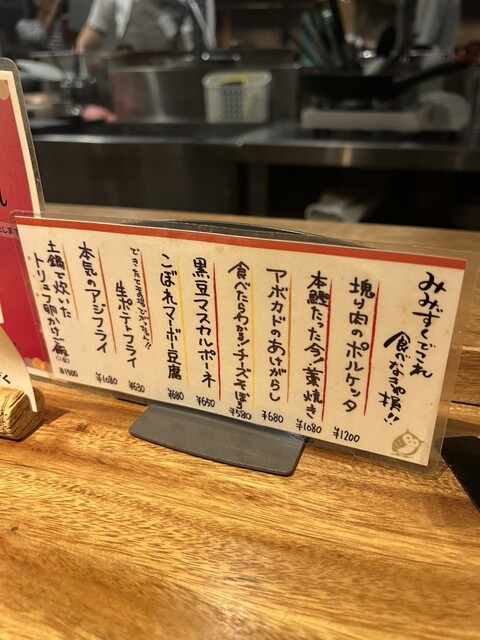 みみずくでこれ
食べなきゃ損!!
塊り肉のポルケッタ
¥1200
本鰹たった今、藁焼き
¥1080
アボカドのあけがらし
¥680
食べたら分かるチーズそぼろ
¥580
黒豆マスカルポーネ
¥650
こぼれマーボー豆腐
¥680
生ポテトフライ
¥630
本気のアジフライ
¥1080
土鍋で炊いた
トリュフ卵かけご飯